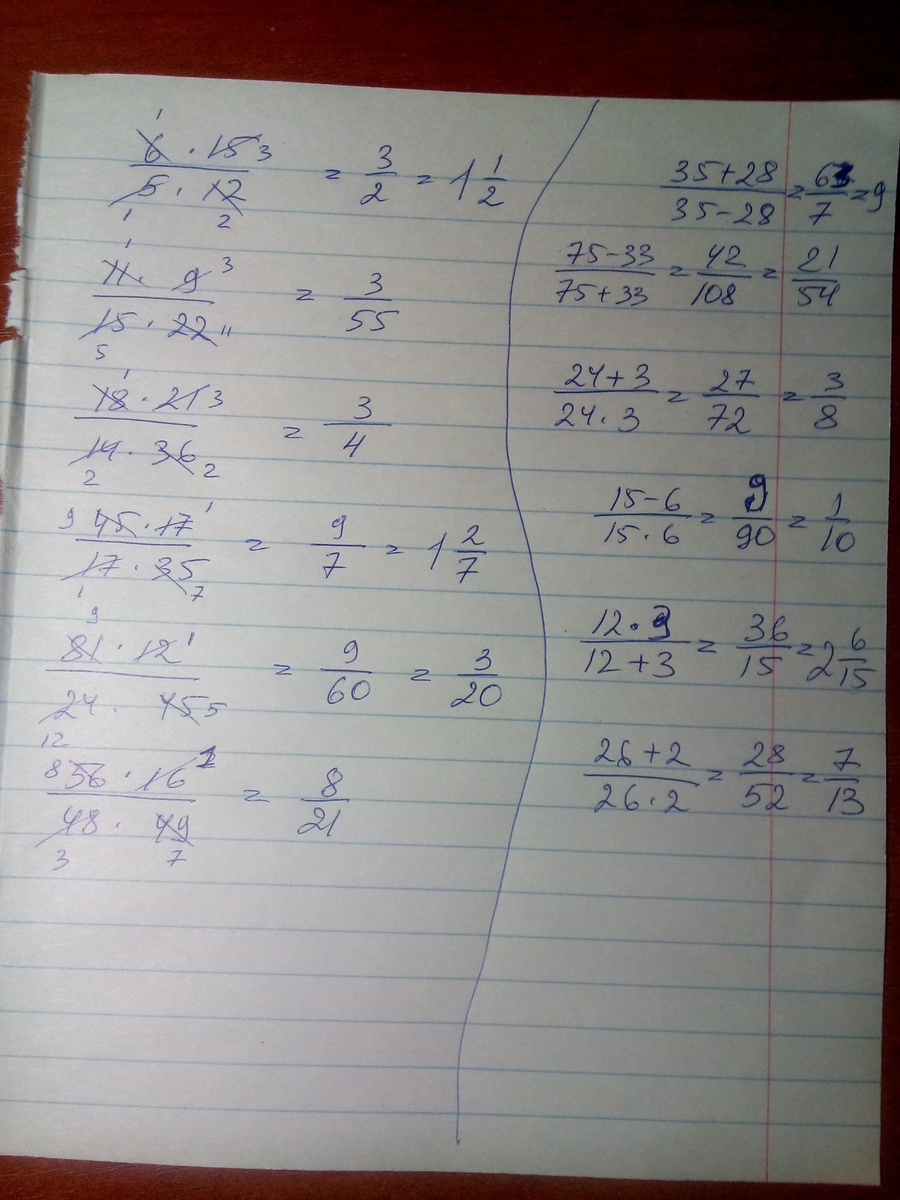 6 · 15 / 5 · 12 = 3/2 = 1 1/2
11 · 9 / 15 · 22 = 3/55
18 · 21 / 14 · 36 = 3/4
45 · 17 / 17 · 35 = 9/7 = 1 2/7
81 · 12 / 24 · 45 = 9/60 = 3/20
56 · 16 / 48 · 49 = 8/21
35+28 / 35-28 = 63/7 = 9
75-33 / 75+33 = 42/108 = 21/54
24+3 / 24·3 = 27/72 = 3/8
15-6 / 15·6 = 9/90 = 1/10
12·3 / 12+3 = 36/15 = 2 6/15
26+2 / 26·2 = 28/52 = 7/13